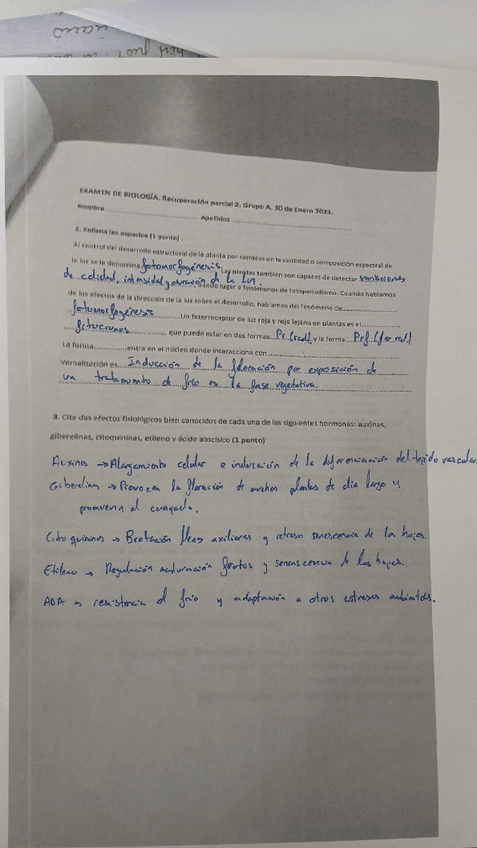 EXAMEN DE BIOLOGÍA. Recuperación parcial 2. Grupo A. 30 de Enero 2023.
Nombre Apellidos
2. Rellena los espacios (1 punto).
Al control del desarrollo estructural de la planta por cambios en la cantidad o composición espectral de
la luz se le denomina fotomorfogénesis. Las plantas también son capaces de detectar variaciones
de calidad, intensidad y duración de la luz. dando lugar a fenómenos de fotoperiodismo. Cuando hablamos
de los efectos de la dirección de la luz sobre el desarrollo, hablamos del fenómeno de
fotomorfogénesis Un fotorreceptor de luz roja y rojo lejano en plantas es el
fitocromos que puede estar en dos formas Pr (red) y la forma Prf (far red)
La forma entra en el núcleo donde interacciona con
Vernalización es Inducción de la floración por exposición de
un tratamiento de frío en la fase vegetativa.
3. Cita dos efectos fisiológicos bien conocidos de cada una de las siguientes hormonas: auxinas,
giberelinas, citoquininas, etileno y ácido abscísico (1 punto)
Auxinas → Alargamiento celular e inducción de la diferenciación del tejido vascular.
→ Provocan la floración de muchas plantas de día largo y
promueven el cuajado.
→ Brotación axiliares y retraso senescencia de las hojas.
Etileno → Regulación maduración frutos y senescencia de las hojas.
ABA → resistencia al frío y adaptación a otros estreses ambientales.